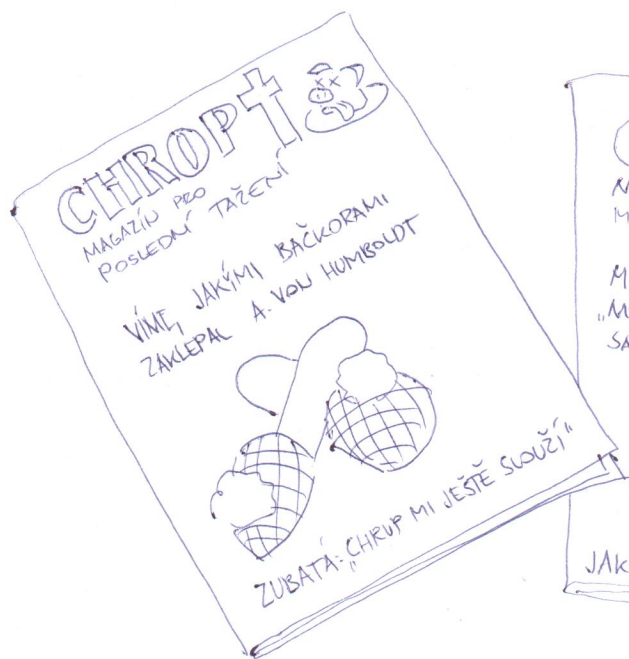 CHROPT
MAGAZÍN PRO
POSLEDNÍ TAŽENÍ
VÍME, JAKÝMI BAČKORAMI
ZAKLEPAL A. VON HUMBOLDT
ZUBATÁ: „CHRUP MI JEŠTĚ SLOUŽÍ“